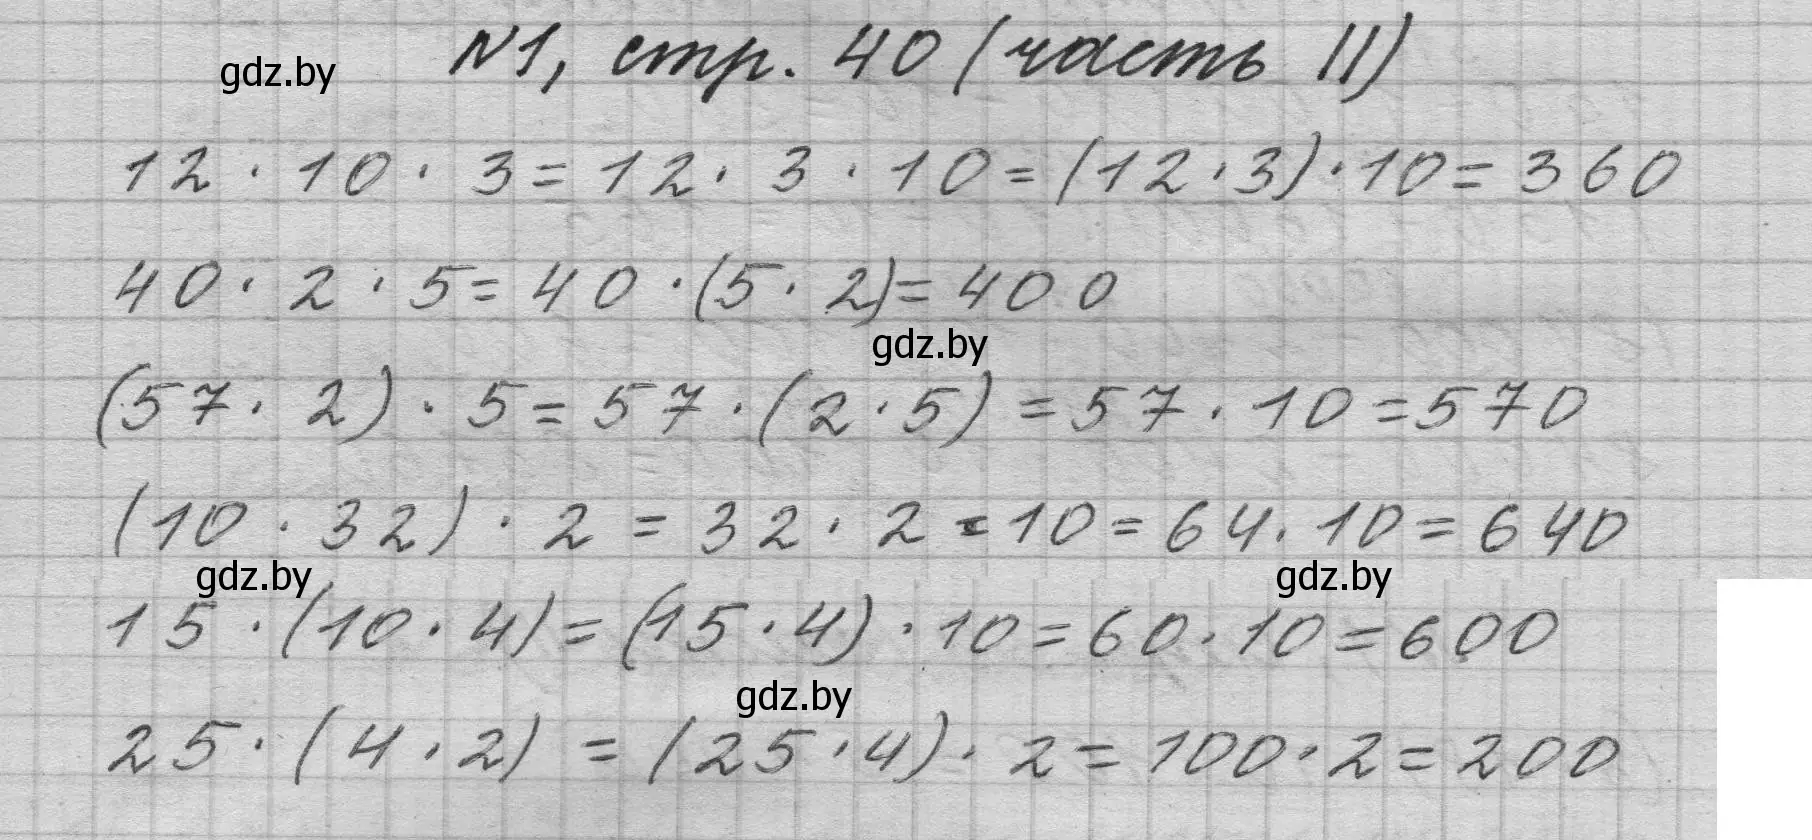 №1, стр. 40 (часть II)
gdz.by
12 · 10 · 3 = 12 · 3 · 10 = (12 · 3) · 10 = 360
40 · 2 · 5 = 40 · (5 · 2) = 400
gdz.by
(57 · 2) · 5 = 57 · (2 · 5) = 57 · 10 = 570
(10 · 32) · 2 = 32 · 2 · 10 = 64 · 10 = 640
gdz.by
gdz.by
15 · (10 · 4) = (15 · 4) · 10 = 60 · 10 = 600
gdz.by
25 · (4 · 2) = (25 · 4) · 2 = 100 · 2 = 200